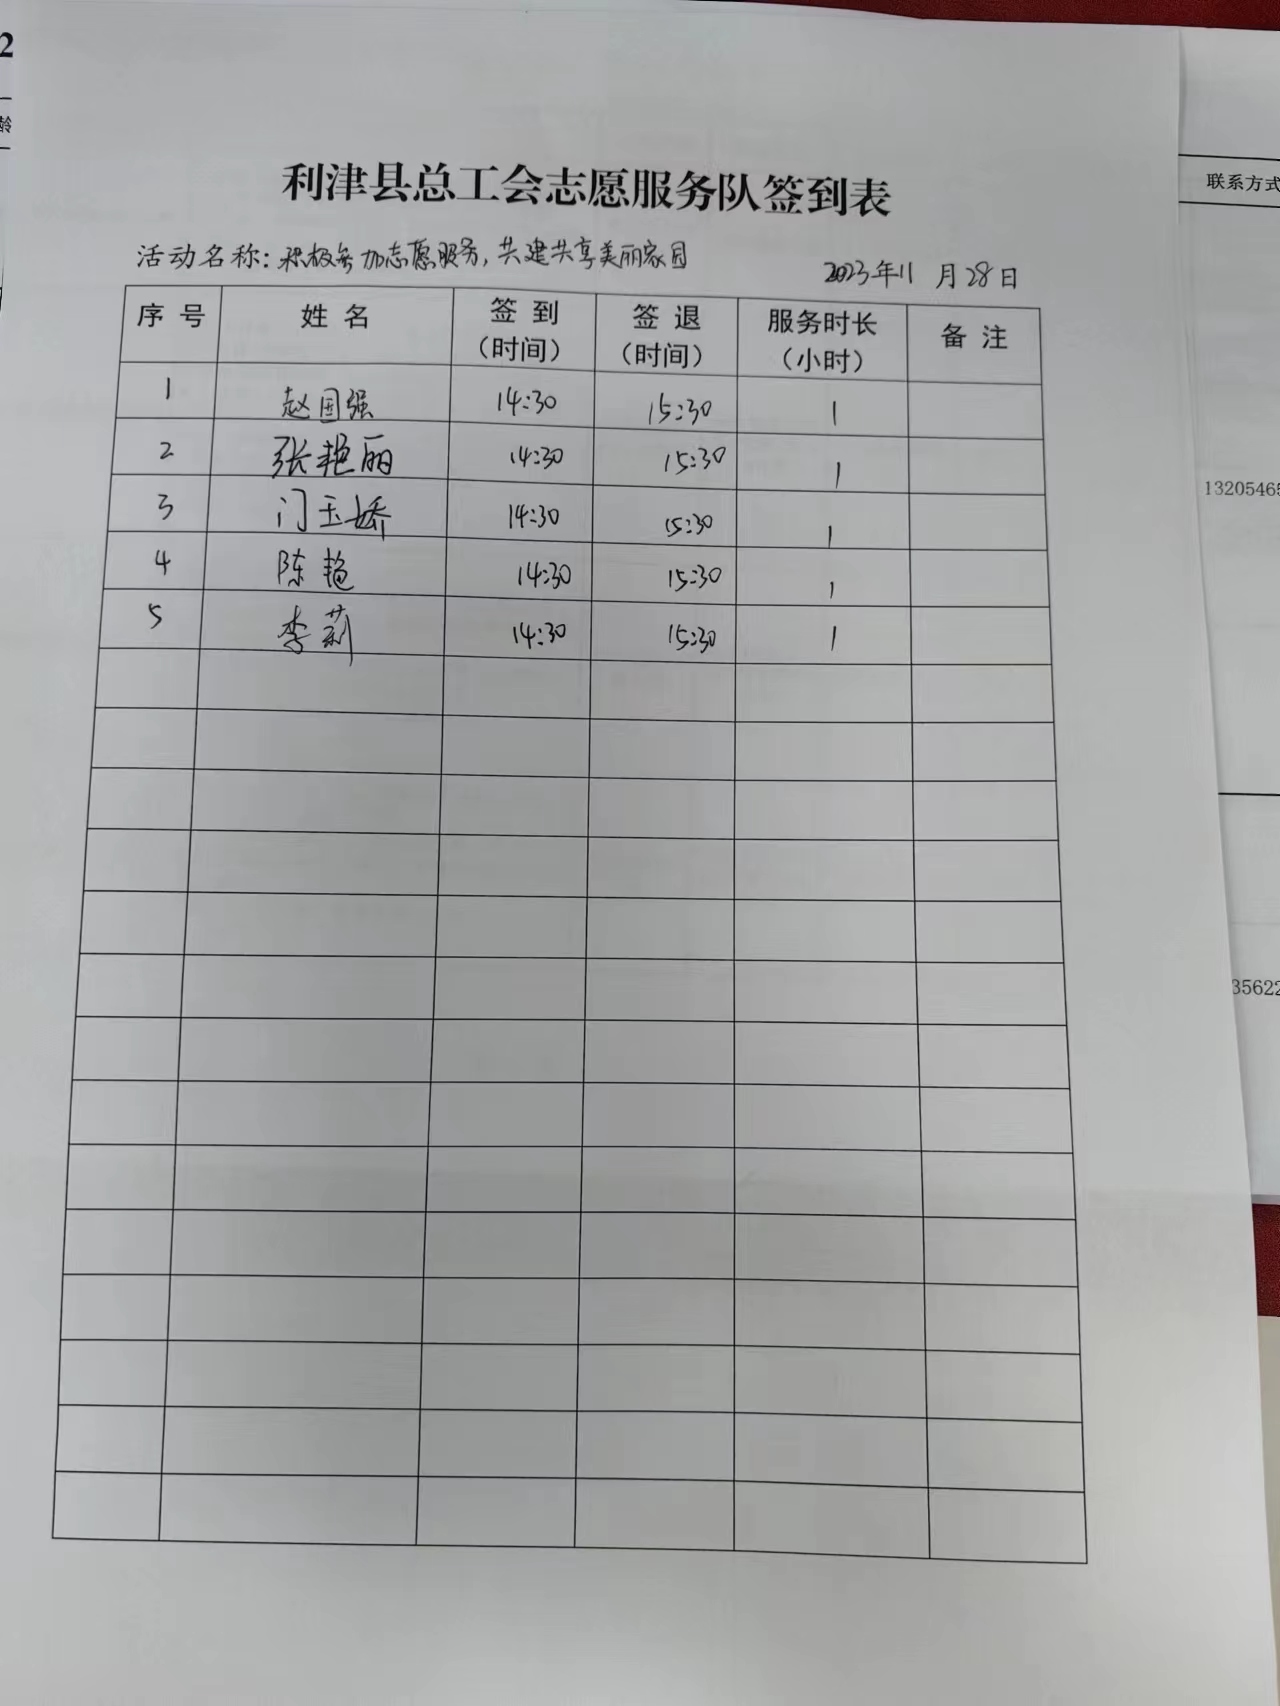 2
龄
利津县总工会志愿服务队签到表
活动名称：积极参加志愿服务，共建共享美丽家园
2023年11月28日
序号 姓名 签到（时间） 签退（时间） 服务时长（小时） 备注
1 赵国强 14:30 15:30 1
2 张艳丽 14:30 15:30 1
3 门玉娇 14:30 15:30 1
4 陈艳 14:30 15:30 1
5 李莉 14:30 15:30 1
联系方式
13205465
35622